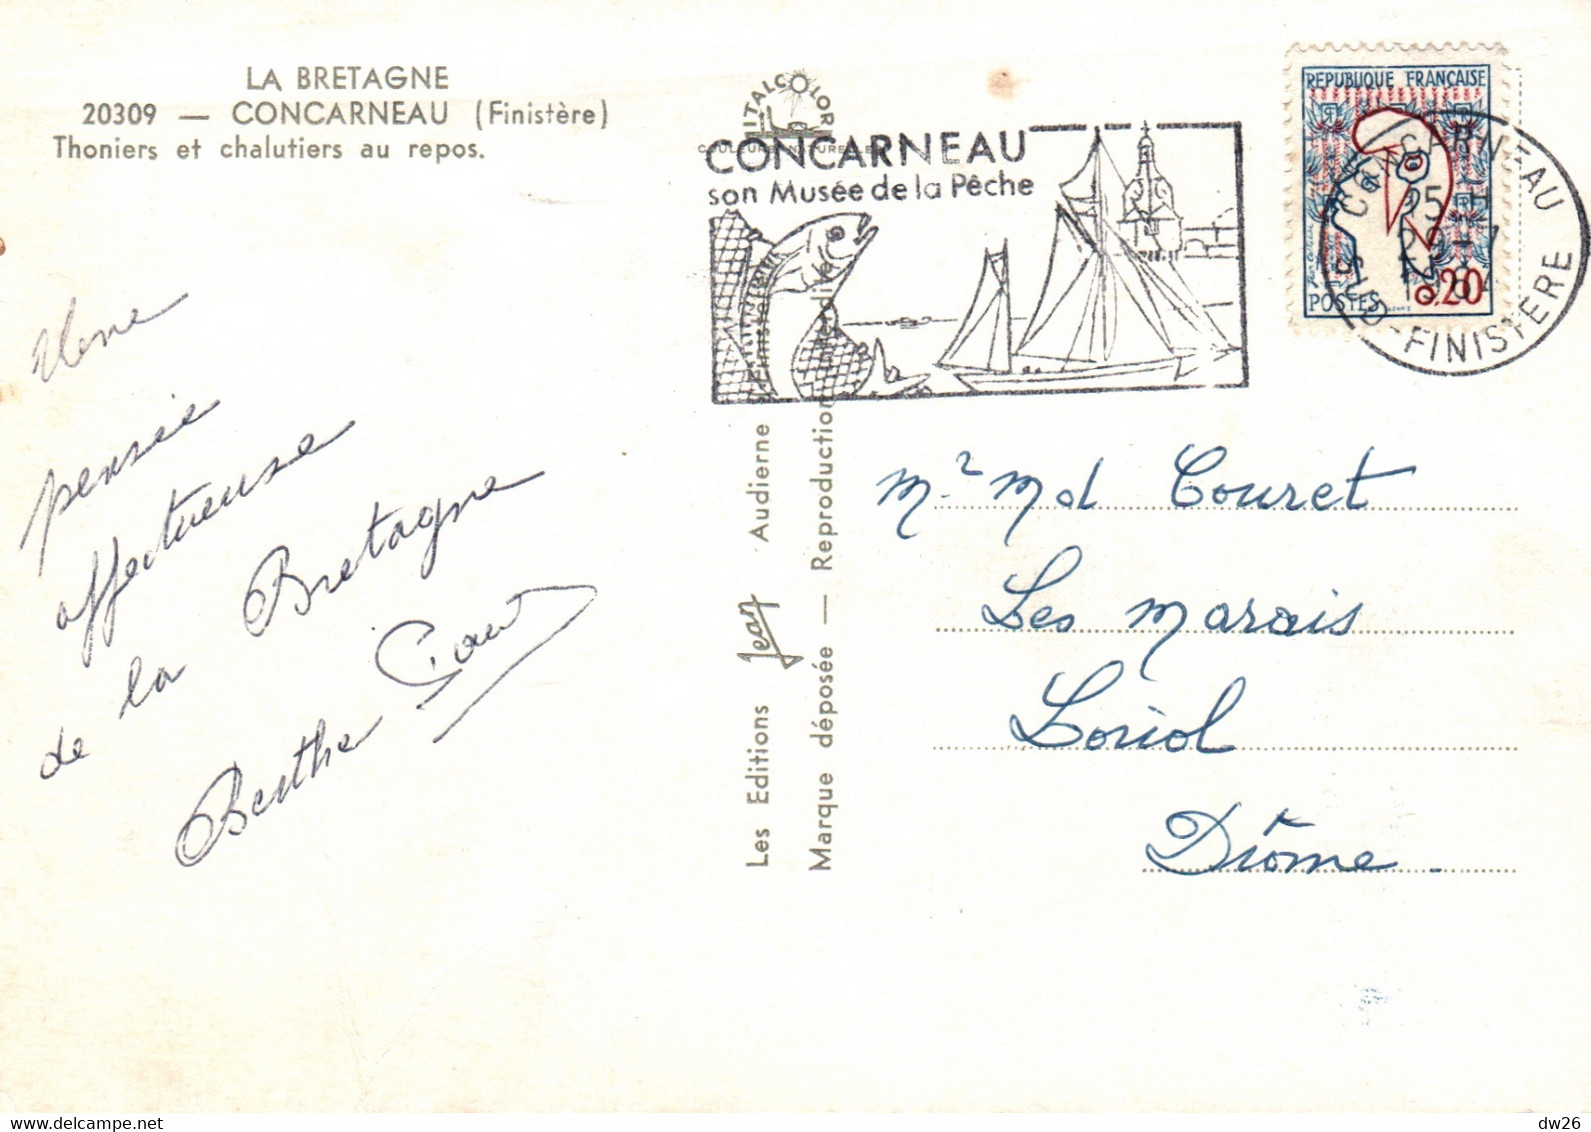 LA BRETAGNE
20309 — CONCARNEAU (Finistère)
Thoniers et chalutiers au repos.
Une
pensée
affectueuse
de la Bretagne
Berthe
Les Editions Jean Audierne (Finistère)
Marque déposée — Reproduction interdite
MITALCOLOR
CONCARNEAU
son Musée de la Pêche
REPUBLIQUE FRANÇAISE
POSTES
0,20
CONCARNEAU
SUD-FINISTERE
Couret
Les Marais
Loriol
Drôme
delcampe.net
dw26